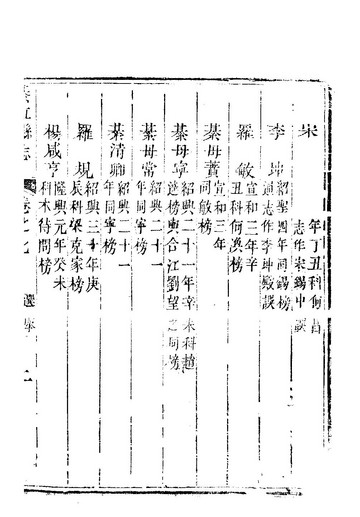 宋
年丁丑科何昌
志作宋錫中誤
李坤 紹聖四年同錫榜
通志作李坤毅誤
羅敏 宣和三年辛
丑科何渙榜
綦母 宣和三年
同敏榜
綦母寧 紹興二十一年辛未科趙
逵榜與合江劉望之同榜
綦母常 紹興二十一
年同寧榜
綦清卿 紹興二十一
年同寧榜
羅規 紹興三十年庚
辰科梁克家榜
楊咸亨 隆興元年癸未
科木待問榜
綦江縣志 卷之 選舉